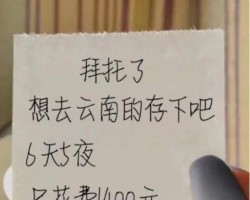 拜托了
想去云南的存下吧
6天5夜
只花费1400元